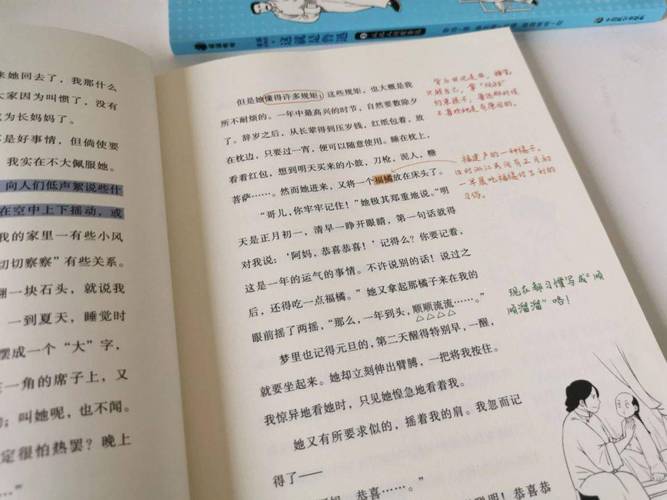 来她回去了，我那什么
大家因为叫惯了，没有
成为长妈妈了。
是好事情，但倘使要
我实在不大佩服她。
向人们低声絮说些什
在空中上下摇动，或
我的家里一有些小风
切切察察”有些关系。
翻一块石头，就说我
一到夏天，睡觉时
摆成一个“大”字，
在一角的席子上，又
；叫她呢，也不闻。
定很怕热罢？晚上
但是她懂得许多规矩；这些规矩，也大概是我
所不耐烦的。一年中最高兴的时节，自然要数除夕
了。辞岁之后，从长辈得到压岁钱，红纸包着，放
在枕边，只要过一宵，便可以随意使用。睡在枕上，
看着红包，想到明天买来的小鼓，刀枪，泥人，糖
菩萨……。然而她进来，又将一个福橘放在床头了。
“哥儿，你牢牢记住！”她极其郑重地说。“明
天是正月初一，清早一睁开眼睛，第一句话就得
对我说：‘阿妈，恭喜恭喜！’记得么？你要记着，
这是一年的运气的事情。不许说别的话！说过之
后，还得吃一点福橘。”她又拿起那橘子来在我的
眼前摇了两摇，“那么，一年到头，顺顺流流……。”
梦里也记得元旦的，第二天醒得特别早，一醒，
就要坐起来。她却立刻伸出臂膊，一把将我按住。
我惊异地看她时，只见她惶急地看着我。
她又有所要求似的，摇着我的肩。我忽而记
得了——
妈，恭喜……”
恭喜恭
福建产的一种橘子，
习俗。
现在都习惯写成“顺
顺溜溜”唔！